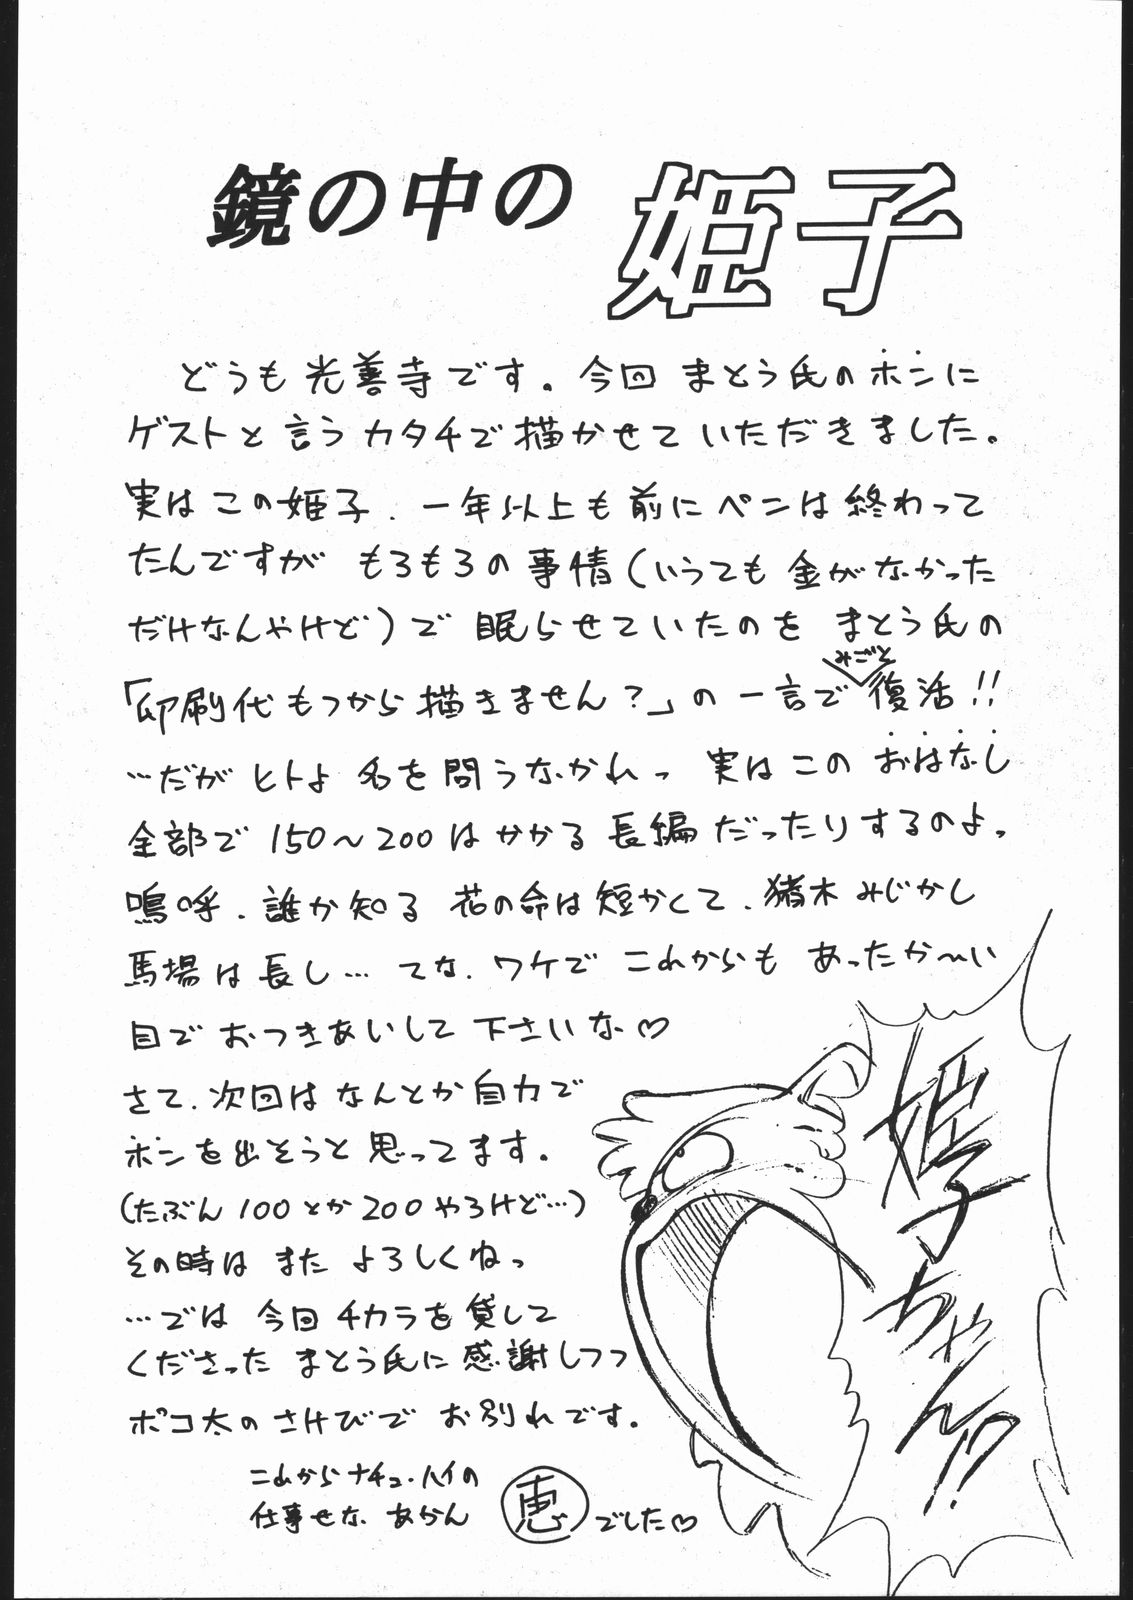 鏡の中の姫子
どうも光善寺です。今回まとう氏のホンに
ゲストと言うカタチで描かせていただきました。
実はこの姫子、一年以上も前にペンは終わって
たんですがもろもろの事情(いうても金がなかった
だけなんやけど)で眠らせていたのをまとう氏の
「印刷代もつから描きません?」の一言でみごと復活!!
…だがヒトよ名を問うなかれっ 実はこのおはなし
全部で150〜200はかかる長編だったりするのよっ
嗚呼、誰か知る花の命は短かくて、猪木みじかし
馬場は長し…てな、ワケでこれからもあったか〜い
目でおつきあいして下さいな♡
さて、次回はなんとか自力で
ホンを出そうと思ってます。
(たぶん100とか200やろけど…)
その時はまたよろしくねっ
…では今回チカラを貸して
くださったまとう氏に感謝しつつ
ポコ太のさけびでお別れです。
これからナチュ・ハイの
仕事せなあかん
恵でした♡
姫子ちゃん!?